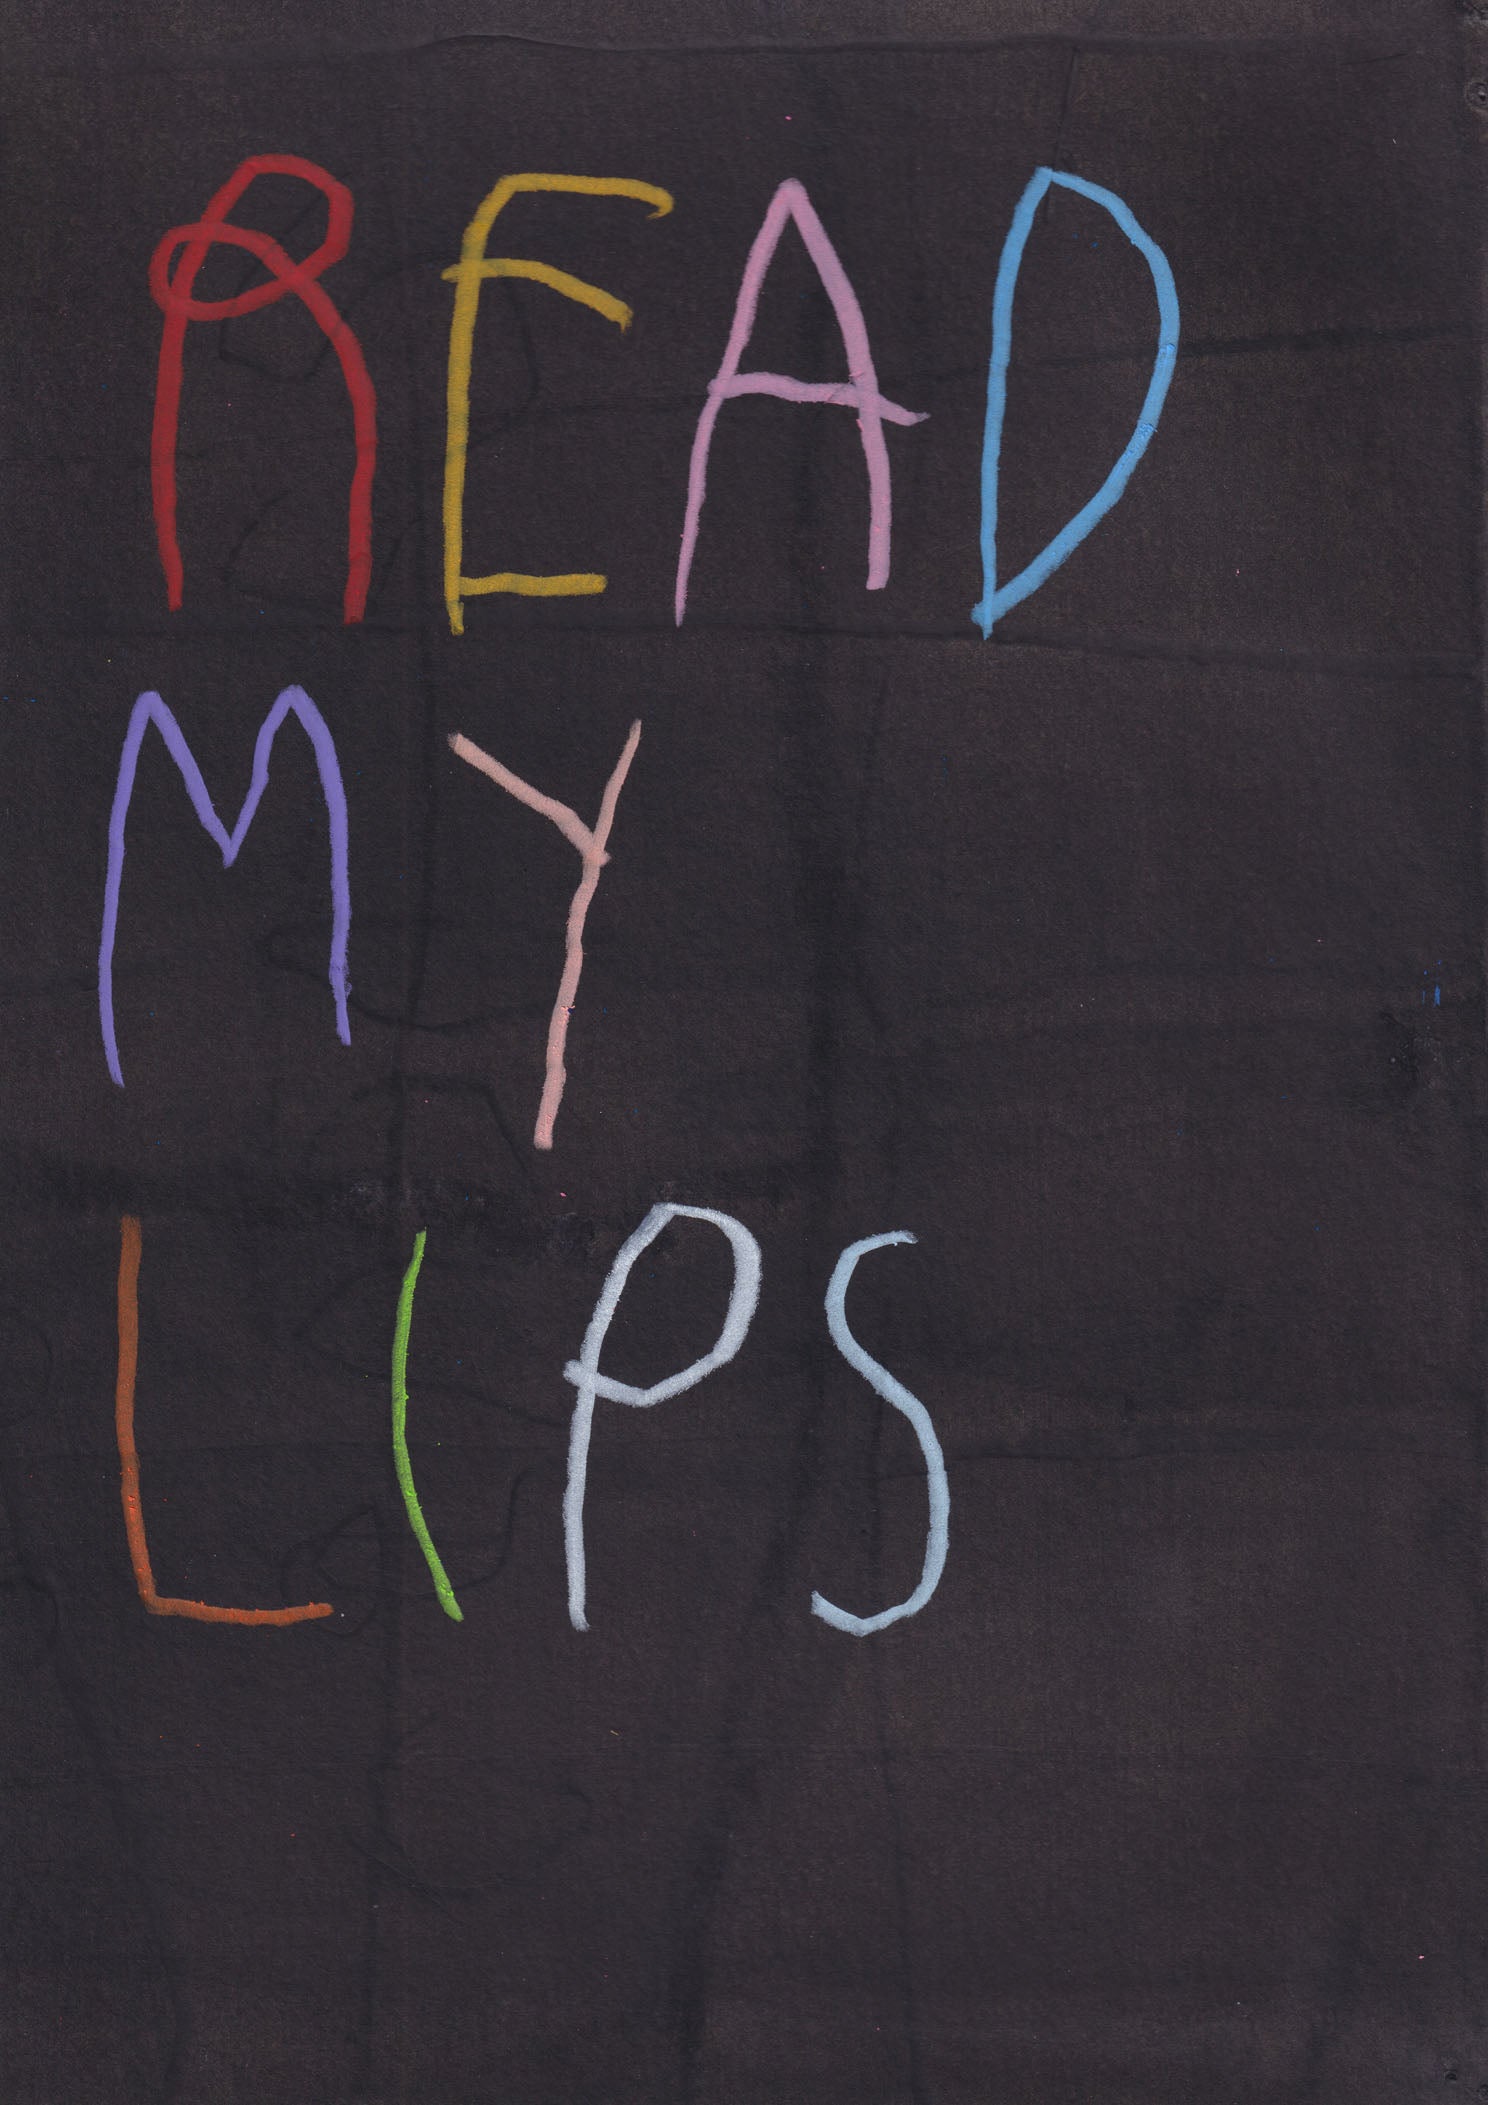 READ
MY
LIPS